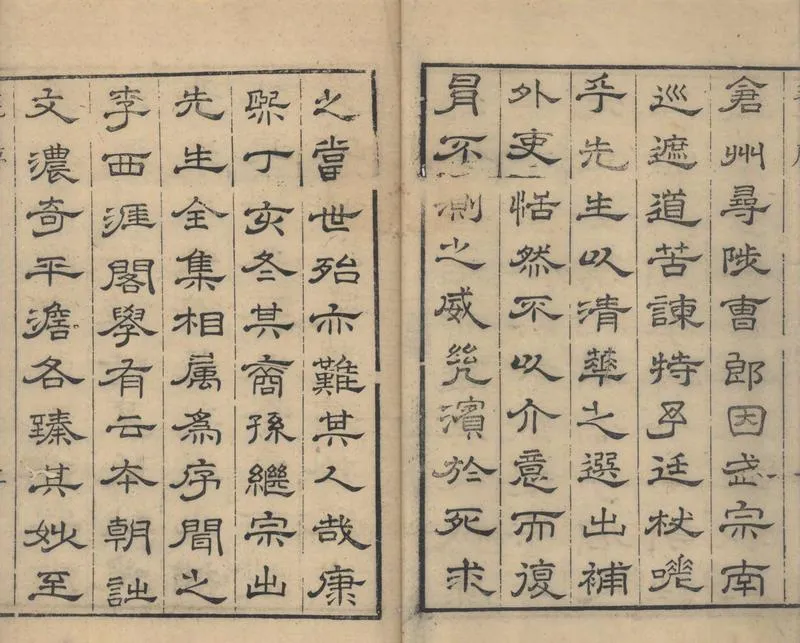 倉州尋陟曹郎因武宗南
巡遮道苦諫特予廷杖嗟
乎先生以清華之選出補
外吏恬然不以介意而復
冒不測之威幾濱於死求
之當世殆亦難其人哉康
熙丁亥冬其裔孫繼宗出
先生全集相属為序聞之
李西涯閣學有云本朝詩
文濃奇平澹各臻其妙至